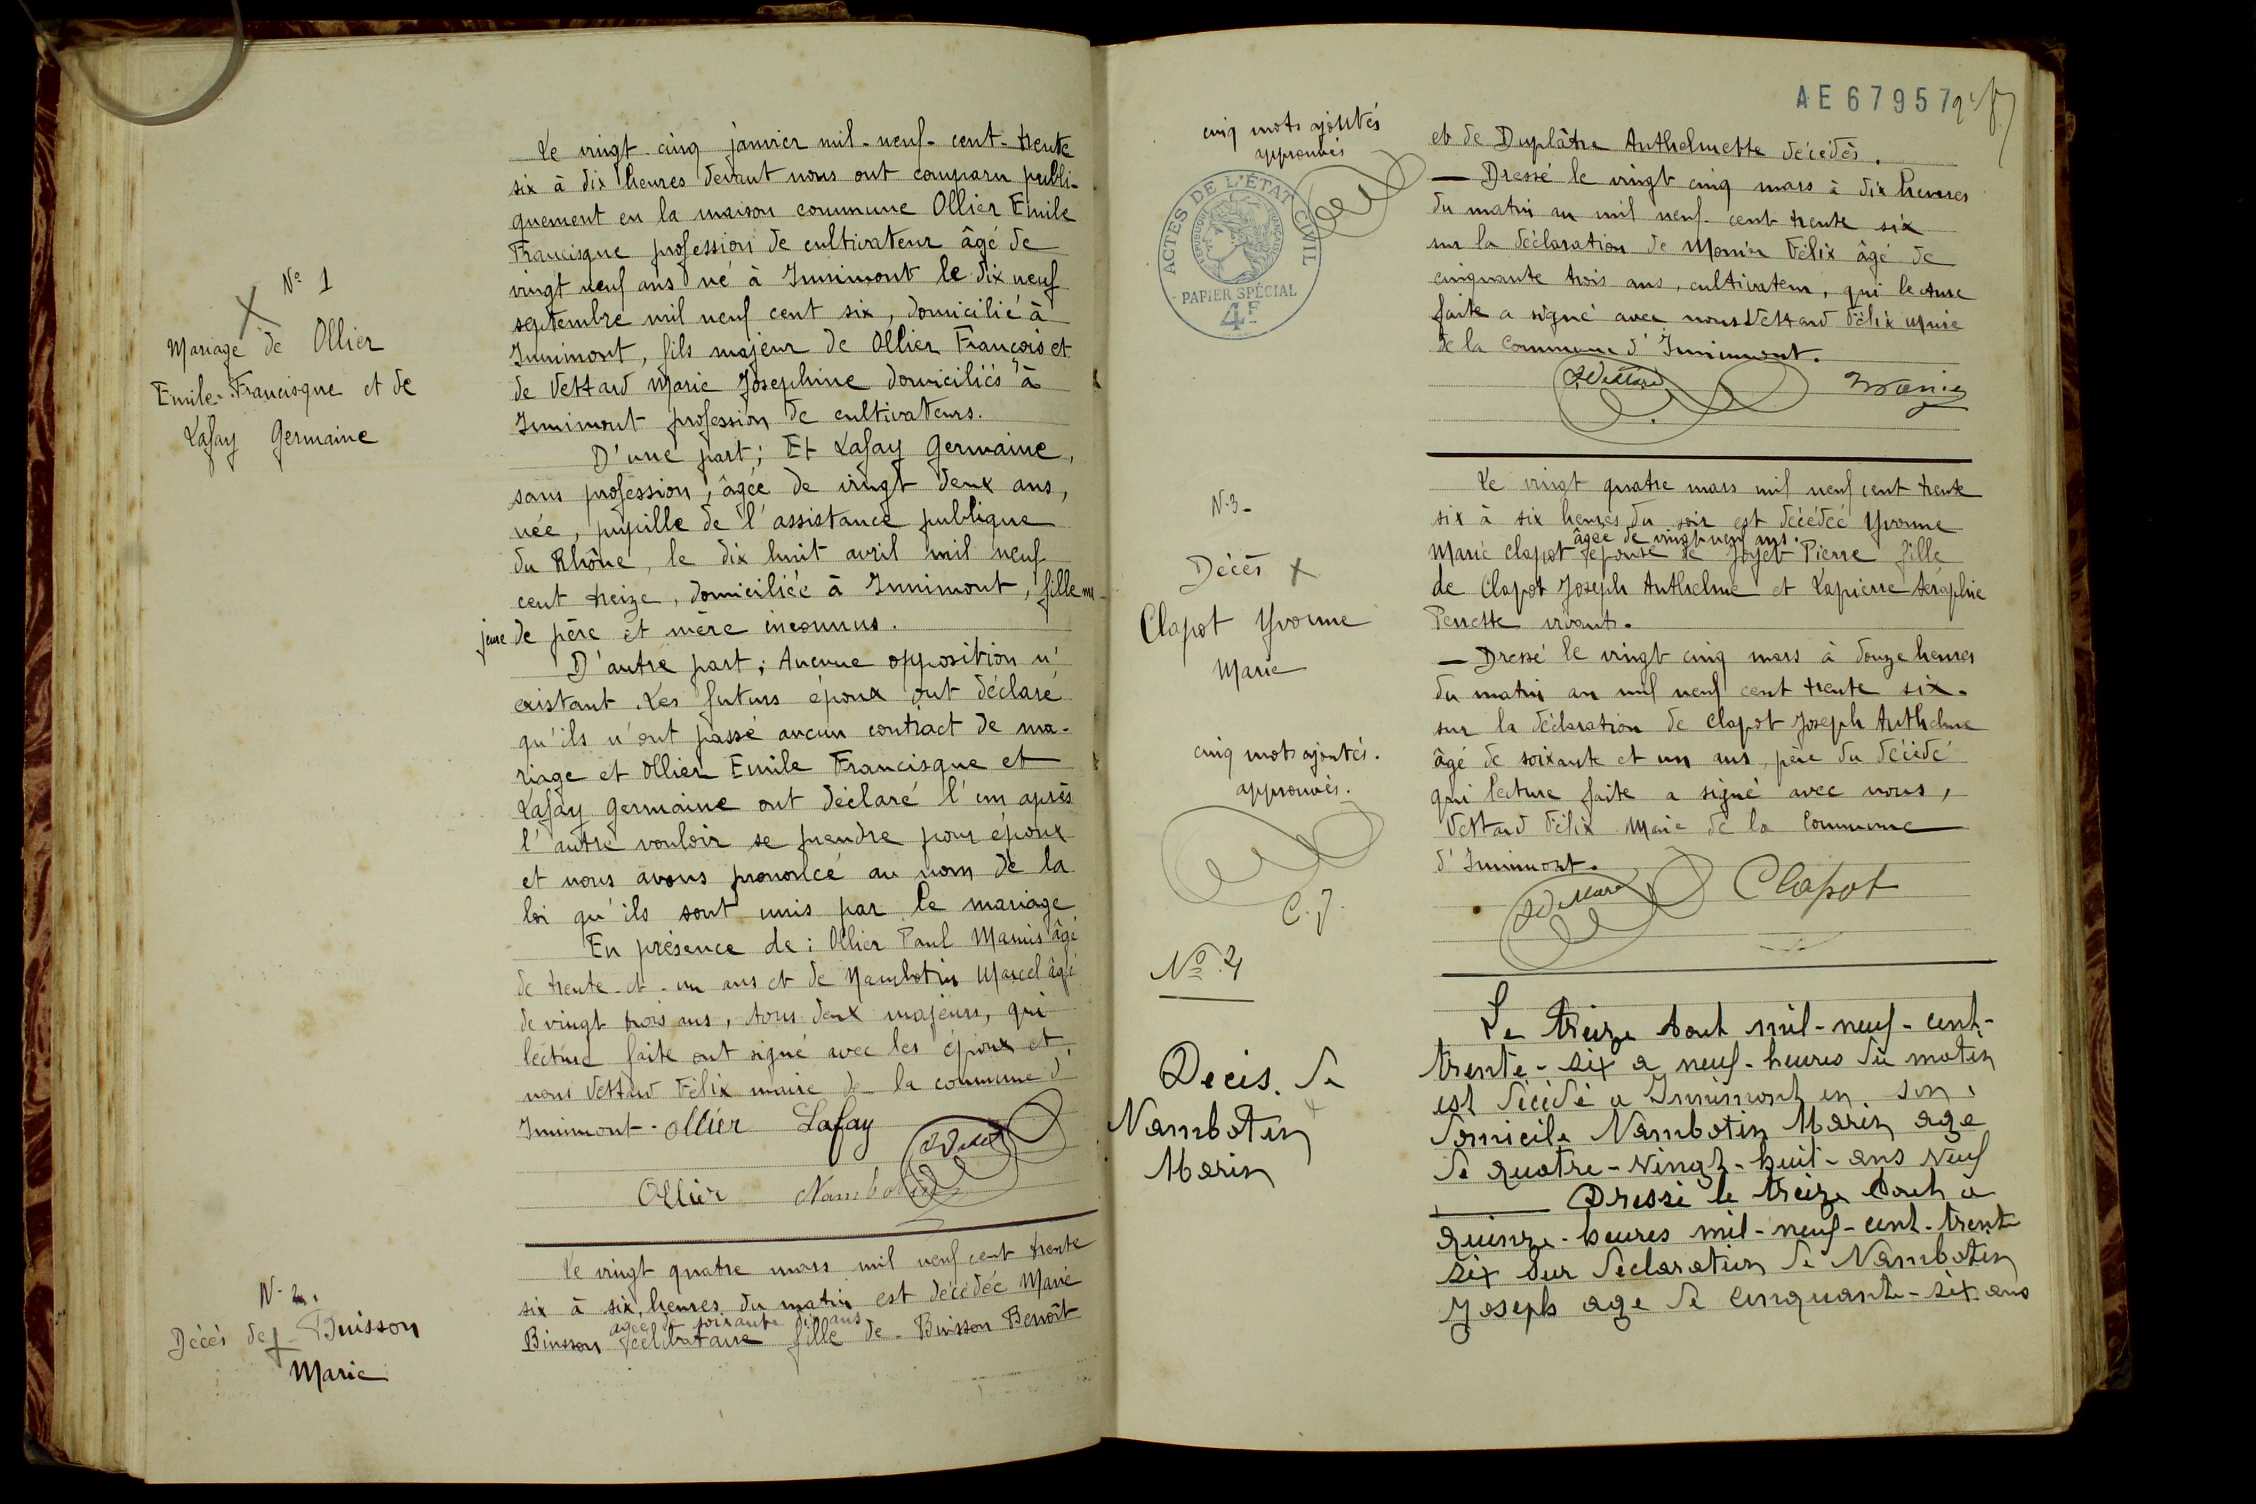 N° 1
Mariage de Ollier
Emile-Francisque et de
Lafay Germaine
Le vingt cinq janvier mil-neuf-cent-trente
six à dix heures devant nous ont comparu publi-
quement en la maison commune Ollier Emile
Francisque profession de cultivateur âgé de
vingt neuf ans né à Innimont le dix neuf
septembre mil neuf cent six, domicilié à
Innimont, fils majeur de Ollier François et
de Vettard Marie Josephine domiciliés à
Innimont profession de cultivateurs.
D'une part; Et Lafay Germaine,
sans profession, âgée de vingt deux ans,
née, pupille de l'assistance publique
du Rhône, le dix huit avril mil neuf
cent treize, domiciliée à Innimont, fille ma-
jeure de père et mère inconnus.
D'autre part; Aucune opposition n'
existant Les futurs époux ont déclaré
qu'ils n'ont passé aucun contract de ma-
riage et Ollier Emile Francisque et
Lafay Germaine ont déclaré l'un après
l'autre vouloir se prendre pour époux
et nous avons prononcé au nom de la
loi qu'ils sont unis par le mariage
En présence de: Ollier Paul Marius âgé
de trente-et-un ans et de Nambotin Marcel âgé
de vingt trois ans, tous deux majeurs, qui
lecture faite ont signé avec les époux et,
nous Vettard Félix maire de la commune d'
Innimont- Ollier Lafay
F Vettard
Ollier Nambotin
N-2.
Décès de Buisson
Marie
Le vingt quatre mars mil neuf cent trente
six à six heures du matin est décédée Marie
agée de soixante ans
Buisson célibataire fille de Buisson Benoît
AE67957
cinq mots ajoutés
approuvés
ACTES DE L'ÉTAT CIVIL
RÉPUBLIQUE FRANÇAISE
PAPIER SPÉCIAL
4F
et de Duplâtre Anthelmette décédés.
— Dressé le vingt cinq mars à dix heures
du matin an mil neuf cent trente six
sur la déclaration de Monin Félix âgé de
cinquante trois ans, cultivateur, qui lecture
faite a signé avec nous Vettard Félix maire
de la Commune d'Innimont.
F Vettard Monin
N-3-
Décès
Clapot Yvonne
Marie
cinq mots ajoutés.
approuvés.
C.J.
Le vingt quatre mars mil neuf cent trente
six à six heures du soir est décédée Yvonne
âgée de vingt-neuf ans.
Marie Clapot épouse de Joyet Pierre fille
de Clapot Joseph Anthelme et Lapierre Séraphie
Perrette vivants.
— Dressé le vingt cinq mars à douze heures
du matin an mil neuf cent trente six.
sur la déclaration de Clapot Joseph Anthelme
âgé de soixante et un ans, père du décédé
qui lecture faite a signé avec nous,
Vettard Félix Maire de la Commune
d'Innimont.
F Vettard Clapot
N° 4
Décès de
Nambotin
Marin
Le treize Aout mil-neuf-cent-
trente-six a neuf-heures du matin
est décédé a Innimont en son
domicile Nambotin Marin age
de quatre-vingt-huit-ans Veuf
Dressé le treize Aout a
quinze-heures mil-neuf-cent-trent
six sur declaration de Nambotin
Joseph age de cinquante-six ans